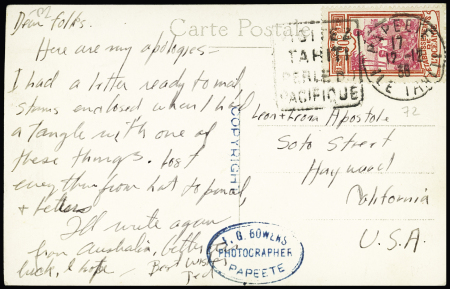 Carte Postale
Dear folks.
Here are my apologies -
I had a letter ready to mail,
stamps enclosed when I had
a tangle with one of
these things. Lost
everything from hat to pencil,
+ letters
I'll write again
from Australia, better
luck, I hope - Best wishes
Ted
VISITEZ
TAHITI
PERLE DU
PACIFIQUE
PAPEETE
17
ILE TAHITI
COPYRIGHT
Leon + from Apostole
Soto Street
Hayward
California
U.S.A.
72
T. G. BOWENS
PHOTOGRAPHER
PAPEETE